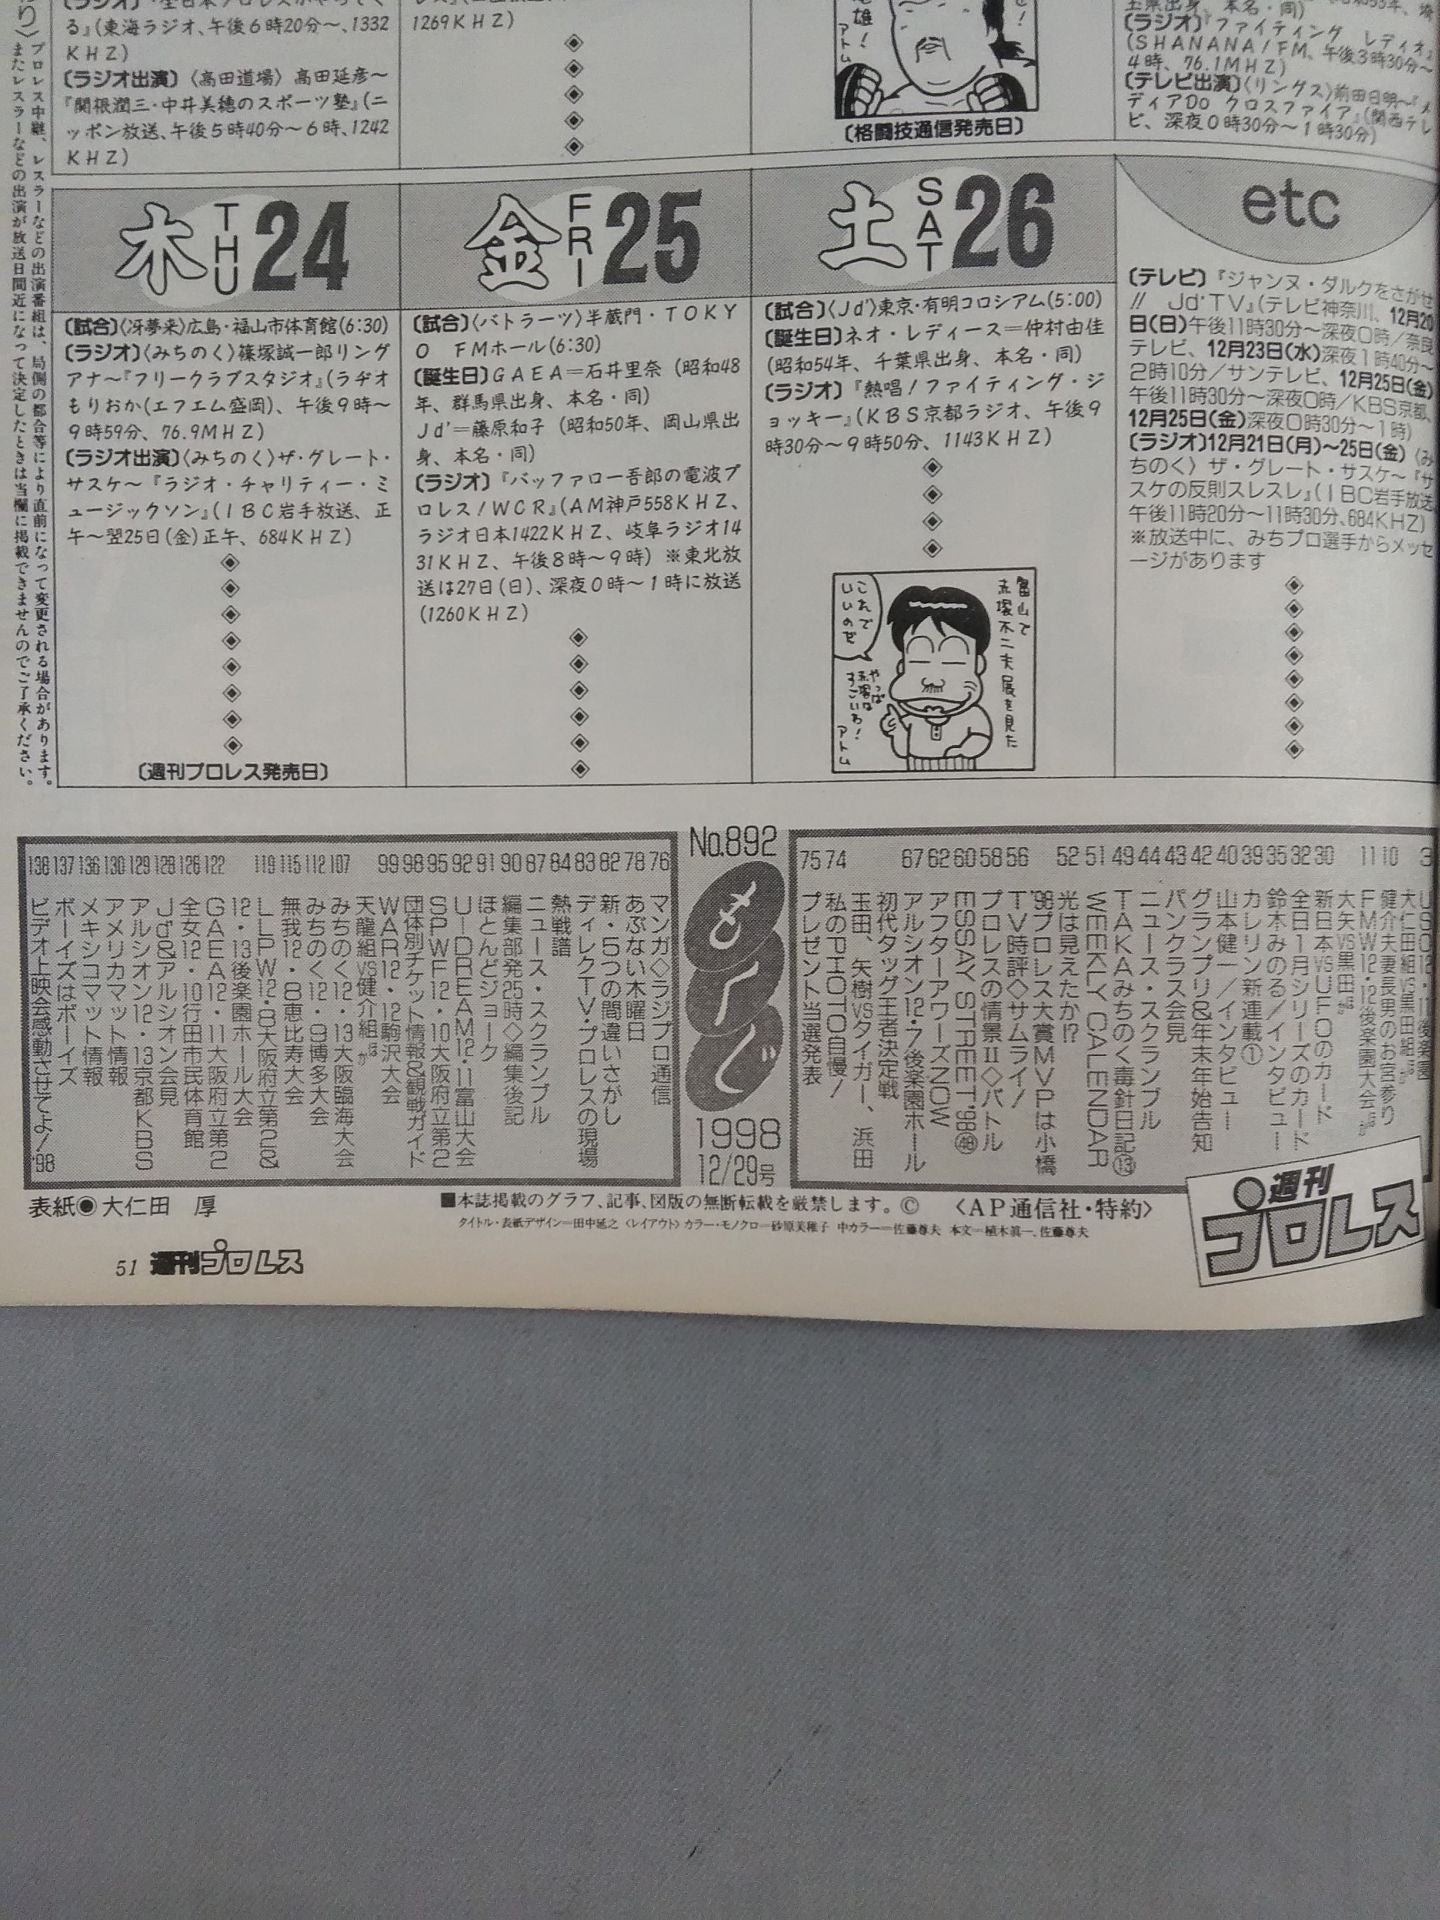 る』(東海ラジオ、午後6時20分〜、1332
KHZ)
〔ラジオ出演〕〈高田道場〉高田延彦〜
『関根潤三・中井美穂のスポーツ塾』(ニ
ッポン放送、午後5時40分〜6時、1242
KHZ)
1269KHZ)
アトム
〔格闘技通信発売日〕
玉県出身、本名・同)
〔ラジオ〕『ファイティング レディオ』
(SHANANA/FM、午後3時30分〜
4時、76.1MHZ)
〔テレビ出演〕〈リングス〉前田日明〜『メ
ディアDo クロスファイア』(関西テレ
ビ、深夜0時30分〜1時30分)
プロレス中継、レスラーなどの出演番組は、局側の都合等により直前になって変更される場合があります。
またレスラーなどの出演が放送日間近になって決定したときは当欄に掲載できませんのでご了承ください。
木 THU 24
〔試合〕〈冴夢来〉広島・福山市体育館(6:30)
〔ラジオ〕〈みちのく〉篠塚誠一郎リング
アナ〜『フリークラブスタジオ』(ラヂオ
もりおか(エフエム盛岡)、午後9時〜
9時59分、76.9MHZ)
〔ラジオ出演〕〈みちのく〉ザ・グレート・
サスケ〜『ラジオ・チャリティー・ミ
ュージックソン』(IBC岩手放送、正
午〜翌25日(金)正午、684KHZ)
〔週刊プロレス発売日〕
金 FRI 25
〔試合〕〈バトラーツ〉半蔵門・TOKY
O FMホール(6:30)
〔誕生日〕GAEA=石井里奈(昭和48
年、群馬県出身、本名・同)
Jd'=藤原和子(昭和50年、岡山県出
身、本名・同)
〔ラジオ〕『バッファロー吾郎の電波プ
ロレス!WCR』(AM神戸558KHZ、
ラジオ日本1422KHZ、岐阜ラジオ14
31KHZ、午後8時〜9時)※東北放
送は27日(日)、深夜0時〜1時に放送
(1260KHZ)
土 SAT 26
〔試合〕〈Jd'〉東京・有明コロシアム(5:00)
〔誕生日〕ネオ・レディース=仲村由佳
(昭和54年、千葉県出身、本名・同)
〔ラジオ〕『熱唱!ファイティング・ジ
ョッキー』(KBS京都ラジオ、午後9
時30分〜9時50分、1143KHZ)
富山で
赤塚不二夫展を見た
これで
いいのだ
やっぱ
赤塚は
すごいわ!
アトム
etc
〔テレビ〕『ジャンヌ・ダルクをさがせ
!! Jd'TV』(テレビ神奈川、12月20
日(日)午後11時30分〜深夜0時/奈良
テレビ、12月23日(水)深夜1時40分〜
2時10分/サンテレビ、12月25日(金)
午後11時30分〜深夜0時/KBS京都、
12月25日(金)深夜0時30分〜1時)
〔ラジオ〕12月21日(月)〜25日(金)〈み
ちのく〉ザ・グレート・サスケ〜『サ
スケの反則スレスレ』(IBC岩手放送、
午後11時20分〜11時30分、684KHZ)
※放送中に、みちプロ選手からメッセ
ージがあります
大仁田組VS黒田組ほか
FMW12・12後楽園大会ほか
大矢VS黒田ほか
10 健介夫妻長男のお宮参り
30 新日本VSUFOのカード
32 全日1月シリーズのカード
35 鈴木みのる/インタビュー
39 カレリン新連載①
40 山本健一/インタビュー
42 グランプリ&年末年始告知
43 パンクラス会見
44 ニュース・スクランブル
49 TAKAみちのく毒針日記⑬
51 WEEKLY CALENDAR
52 光は見えたか!?
'98プロレス大賞MVPは小橋
56 TV時評◇サムライ!
58 プロレスの情景Ⅱ◇バトル
60 ESSAY STREET'98㊽
62 アフターアワーズNOW
67 アルシオン12・7後楽園ホール
初代タッグ王者決定戦
玉田、矢樹VSタイガー、浜田
74 私のPHOTO自慢!
75 プレゼント当選発表
No.892
もくじ
1998
12/29号
76 マンガ◇ラジプロ通信
78 あぶない木曜日
82 新・5つの間違いさがし
83 ディレクTV・プロレスの現場
84 熱戦譜
87 ニュース・スクランブル
90 編集部発25時◇編集後記
91 ほとんどジョーク
92 U-DREAM12・11富山大会
95 SPWF12・10大阪府立第2
98 団体別チケット情報&観戦ガイド
99 WAR12・12駒沢大会
天龍組VS健介組ほか
107 みちのく12・13大阪臨海大会
112 みちのく12・9博多大会
115 無我12・8恵比寿大会
119 LLPW12・8大阪府立第2&
12・13後楽園ホール大会
122 GAEA12・11大阪府立第2
126 全女12・10行田市民体育館
128 Jd'&アルシオン会見
129 アルシオン12・13京都KBS
130 アメリカマット情報
136 メキシコマット情報
137 ボーイズはボーイズ
138 ビデオ上映会感動させてよ!'98
表紙◉大仁田 厚
■本誌掲載のグラフ、記事、図版の無断転載を厳禁します。© 〈AP通信社・特約〉
タイトル・表紙デザイン=田中延之 〈レイアウト〉カラー・モノクロ=砂原美稚子 中カラー=佐藤尊夫 本文=植木眞一、佐藤尊夫
週刊
プロレス
51 週刊プロレス